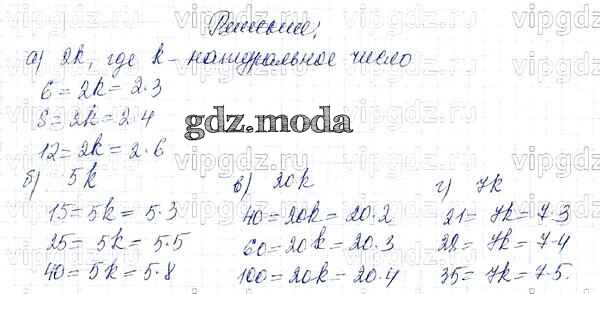 Решение:
а) 2k, где k - натуральное число
6 = 2k = 2·3
8 = 2k = 2·4
12 = 2k = 2·6
gdz.moda
б) 5k
15 = 5k = 5·3
25 = 5k = 5·5
40 = 5k = 5·8
в) 20k
40 = 20k = 20·2
60 = 20k = 20·3
100 = 20k = 20·4
г) 7k
21 = 7k = 7·3
28 = 7k = 7·4
35 = 7k = 7·5.
vipgdz.ru